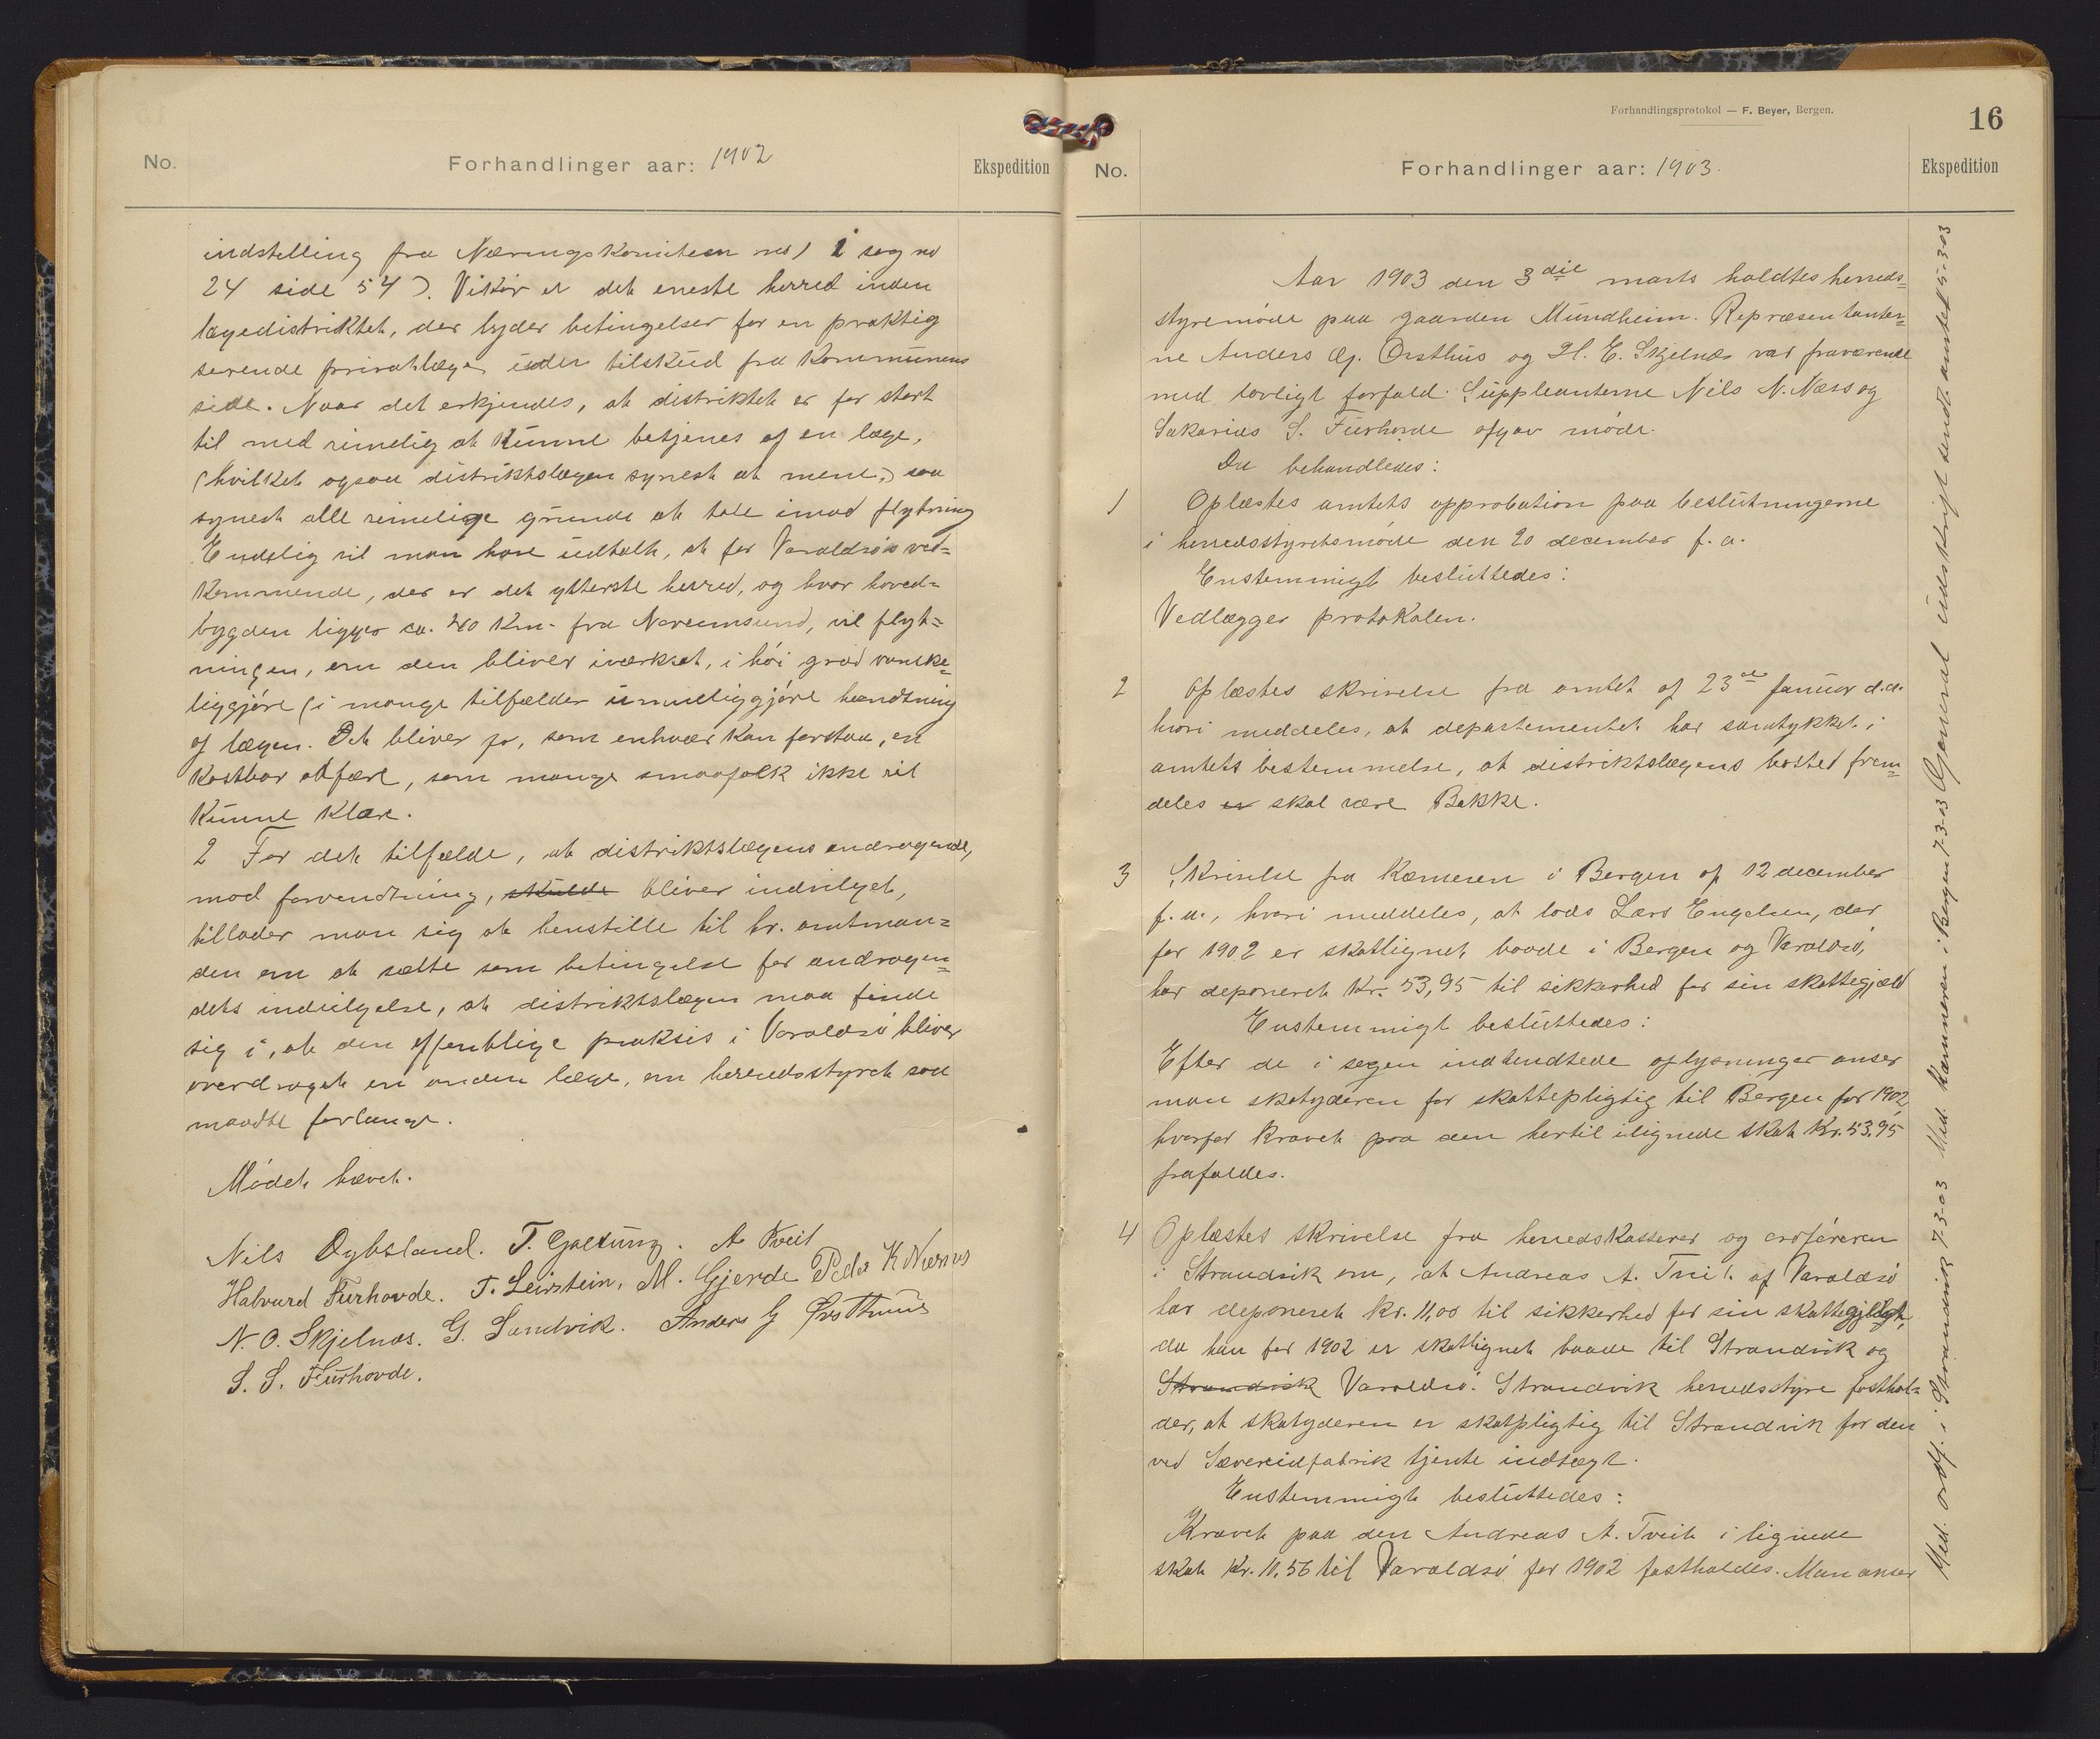 No.
Forhandlinger aar: 1902
Ekspedition
indstilling fra Næringskomiteen no 1 i sag no
24 side 54). Vikør er det eneste herred inden
lægedistriktet, der byder betingelser for en praktig
serende privatlæge uden tilskud fra kommunens
side. Naar det erkjendes, at distriktet er for stort
til med rimelig at kunne betjenes af en læge,
(hvilket ogsaa distriktslægen synest at mene,) saa
synest alle rimelige grunde at tale imod flytning
Endelig vil man have udtalt, at for Varaldsøs ved=
kommende, der er det ytterste herred, og hvor hoved=
bygden ligger ca. 40 km. fra Noreimsund, vil flyt=
ningen, om den bliver iværksat, i høi grad vanske=
liggjøre (i mange tilfælder umuliggjøre hændtning
af lægen. Det bliver jo, som enhver kan forstaa, en
kostbar affære, som mange smaafolk ikke vil
kunne klare.
2 For det tilfælde, at distriktslægens andragende,
mod forvendtning, skulde bliver indvilget,
tillader man sig at henstille til hr. amtman=
den om at sætte som betingelse for andragen=
dets indvilgelse, at distriktslægen maa finde
sig i, at den offentlige praksis i Varaldsø bliver
overdraget en anden læge, om herredsstyret saa
maadte forlange.
Mødet hævet.
Nils Øybsland. T. Gjerdung. A Tveit
Halvard Furhovde. T. Leirstein. M. Gjerde Peder K Næsnes
N. O. Skjelnæs. G. Sandvik. Anders G Ørsthuus
S. S. Furhovde.
Forhandlingsprotokol — F. Beyer, Bergen.
16
No.
Forhandlinger aar: 1903.
Ekspedition
Aar 1903 den 3die marts holdtes herreds=
styremøde paa gaarden Mundheim. Repræsentanter=
ne Anders G. Ørsthus og H. E. Skjelnæs var fraværende
med lovligt forfald. Suppleanterne Nils N. Næss og
Sakarias S. Furhovde afgav møde.
Da behandledes:
1 Oplæstes amtets approbation paa beslutningerne
i herredsstyretsmøde den 20 december f. a.
Enstemmigt besluttedes:
Vedlægges protokolen.
2 Oplæstes skrivelse fra amtet af 23de januar d.a.
hvori meddeles, at departementet har samtykket i
amtets bestemmelse, at distriktslægens bosted frem=
deles er skal være Bakke.
3 Skrivelse fra Kæmneren i Bergen af 12 december
f. a., hvori meddeles, at lods Lars Engelsen, der
for 1902 er skatlignet baade i Bergen og Varaldsø,
har deponeret Kr. 53,95 til sikkerhed for sin skattegjæld
Enstemmigt besluttedes:
Efter de i sagen indhendtede oplysninger anser
man skatyderen for skattepligtig til Bergen for 1902,
hvorfor kravet paa den hertil ilignede skat Kr. 53,95
frafaldes.
4 Oplæstes skrivelse fra herredskasserer og ordføreren
i Strandvik om, at Andreas A. Tveit af Varaldsø
har deponeret Kr. 11,00 til sikkerhed for sin skattepligt,
da han for 1902 er skatlignet baade til Strandvik og
Strandvik Varaldsø. Strandvik herredsstyre fasthol=
der, at skatyderen er skatpligtig til Strandvik for den
ved Sævereidfabrik tjente indtægt.
Enstemmigt besluttedes:
Kravet paa den Andreas A. Tveit ilignede
skat Kr. 10,56 til Varaldsø for 1902 fastholdes. Man anser
Med. ordf. i Strandvik 7-3-03 Med. Kæmneren i Bergen 7-3-03 General udskrift sendt amtet 5-3-03